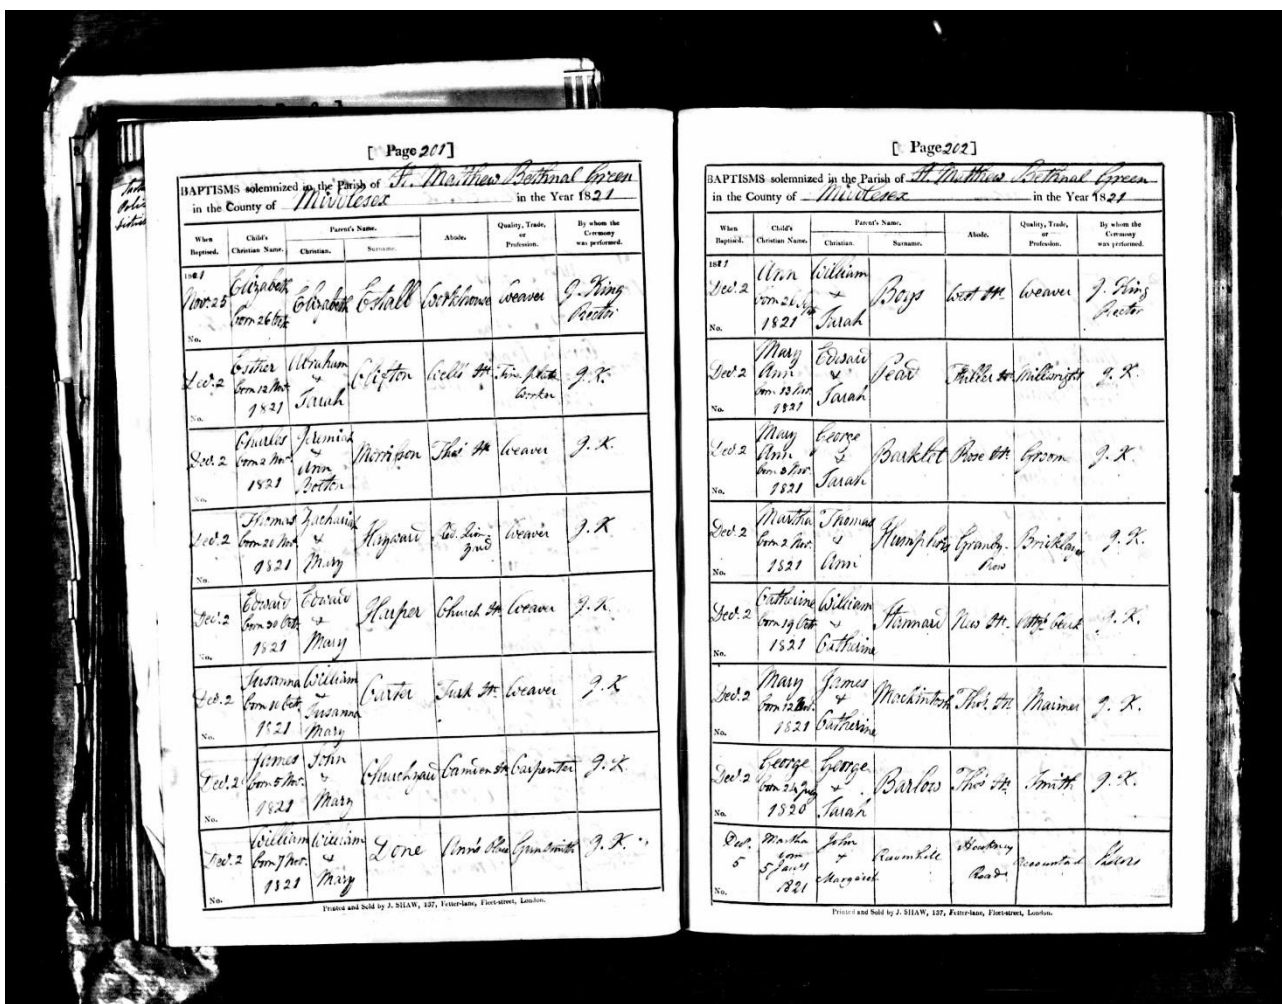 [ Page 201 ]
BAPTISMS solemnized in the Parish of St. Matthew Bethnal Green
in the County of Middlesex in the Year 1821
When Baptised. Child's Christian Name. Parent's Name. Christian. Surname. Abode. Quality, Trade, or Profession. By whom the Ceremony was performed.
1821
Nov. 25 Elizabeth born 26 Octr Elizabeth Eshall Workhouse Weaver J. King Rector
No.
Decr. 2 Esther born 12 Nov. 1821 Abraham & Sarah Clifton Wells St. Tin plate Worker J. K.
No.
Decr. 2 Charles born 2 Nov. 1821 Jeremiah & Ann Botton Morrison Thos. St. Weaver J. K.
No.
Decr. 2 Thomas born 21 Nov. 1821 Zachariah & Mary Hayward Red Lion Yard Weaver J. K
No.
Decr. 2 Edward born 30 Octr. 1821 Edward & Mary Harper Church St. Weaver J. K.
No.
Decr. 2 Susanna born 11 Octr. 1821 William & Susanna Mary Carter Turk St. Weaver J. K
No.
Decr. 2 James born 5 Nov. 1821 John & Mary Churchyard Camden St. Carpenter J. K
No.
Decr. 2 William born 7 Nov. 1821 William & Mary Done Ann's Place Gun Smith J. K.
No.
Printed and Sold by J. SHAW, 137, Fetter-lane, Fleet-street, London.
[ Page 202 ]
BAPTISMS solemnized in the Parish of St. Matthew Bethnal Green
in the County of Middlesex in the Year 1821
When Baptised. Child's Christian Name. Parent's Name. Christian. Surname. Abode. Quality, Trade, or Profession. By whom the Ceremony was performed.
1821
Decr. 2 Ann born 21 Septr 1821 William & Sarah Boys West St. Weaver J. King Rector
No.
Decr. 2 Mary Ann born 13 Nov. 1821 Edward & Sarah Pead Fuller St. Millwright J. K.
No.
Decr. 2 Mary Ann born 3 Nov. 1821 George & Sarah Barklet Rose St. Groom J. K.
No.
Decr. 2 Martha born 2 Nov. 1821 Thomas & Ann Humphris Granby Row Bricklayer J. K.
No.
Decr. 2 Catherine born 19 Octr. 1821 William & Catherine Stannard New St. Clerk J. K.
No.
Decr. 2 Mary born 12 1821 James & Catherine Mackintosh Thos. St. Mariner J. K.
No.
Decr. 2 George born 24 July 1820 George & Sarah Barlow Thos. St. Smith J. K.
No.
Decr. 5 Martha born 5 Jany 1821 John & Margaret Ravenhill Hackney Road Accountant
No.
Printed and Sold by J. SHAW, 137, Fetter-lane, Fleet-street, London.